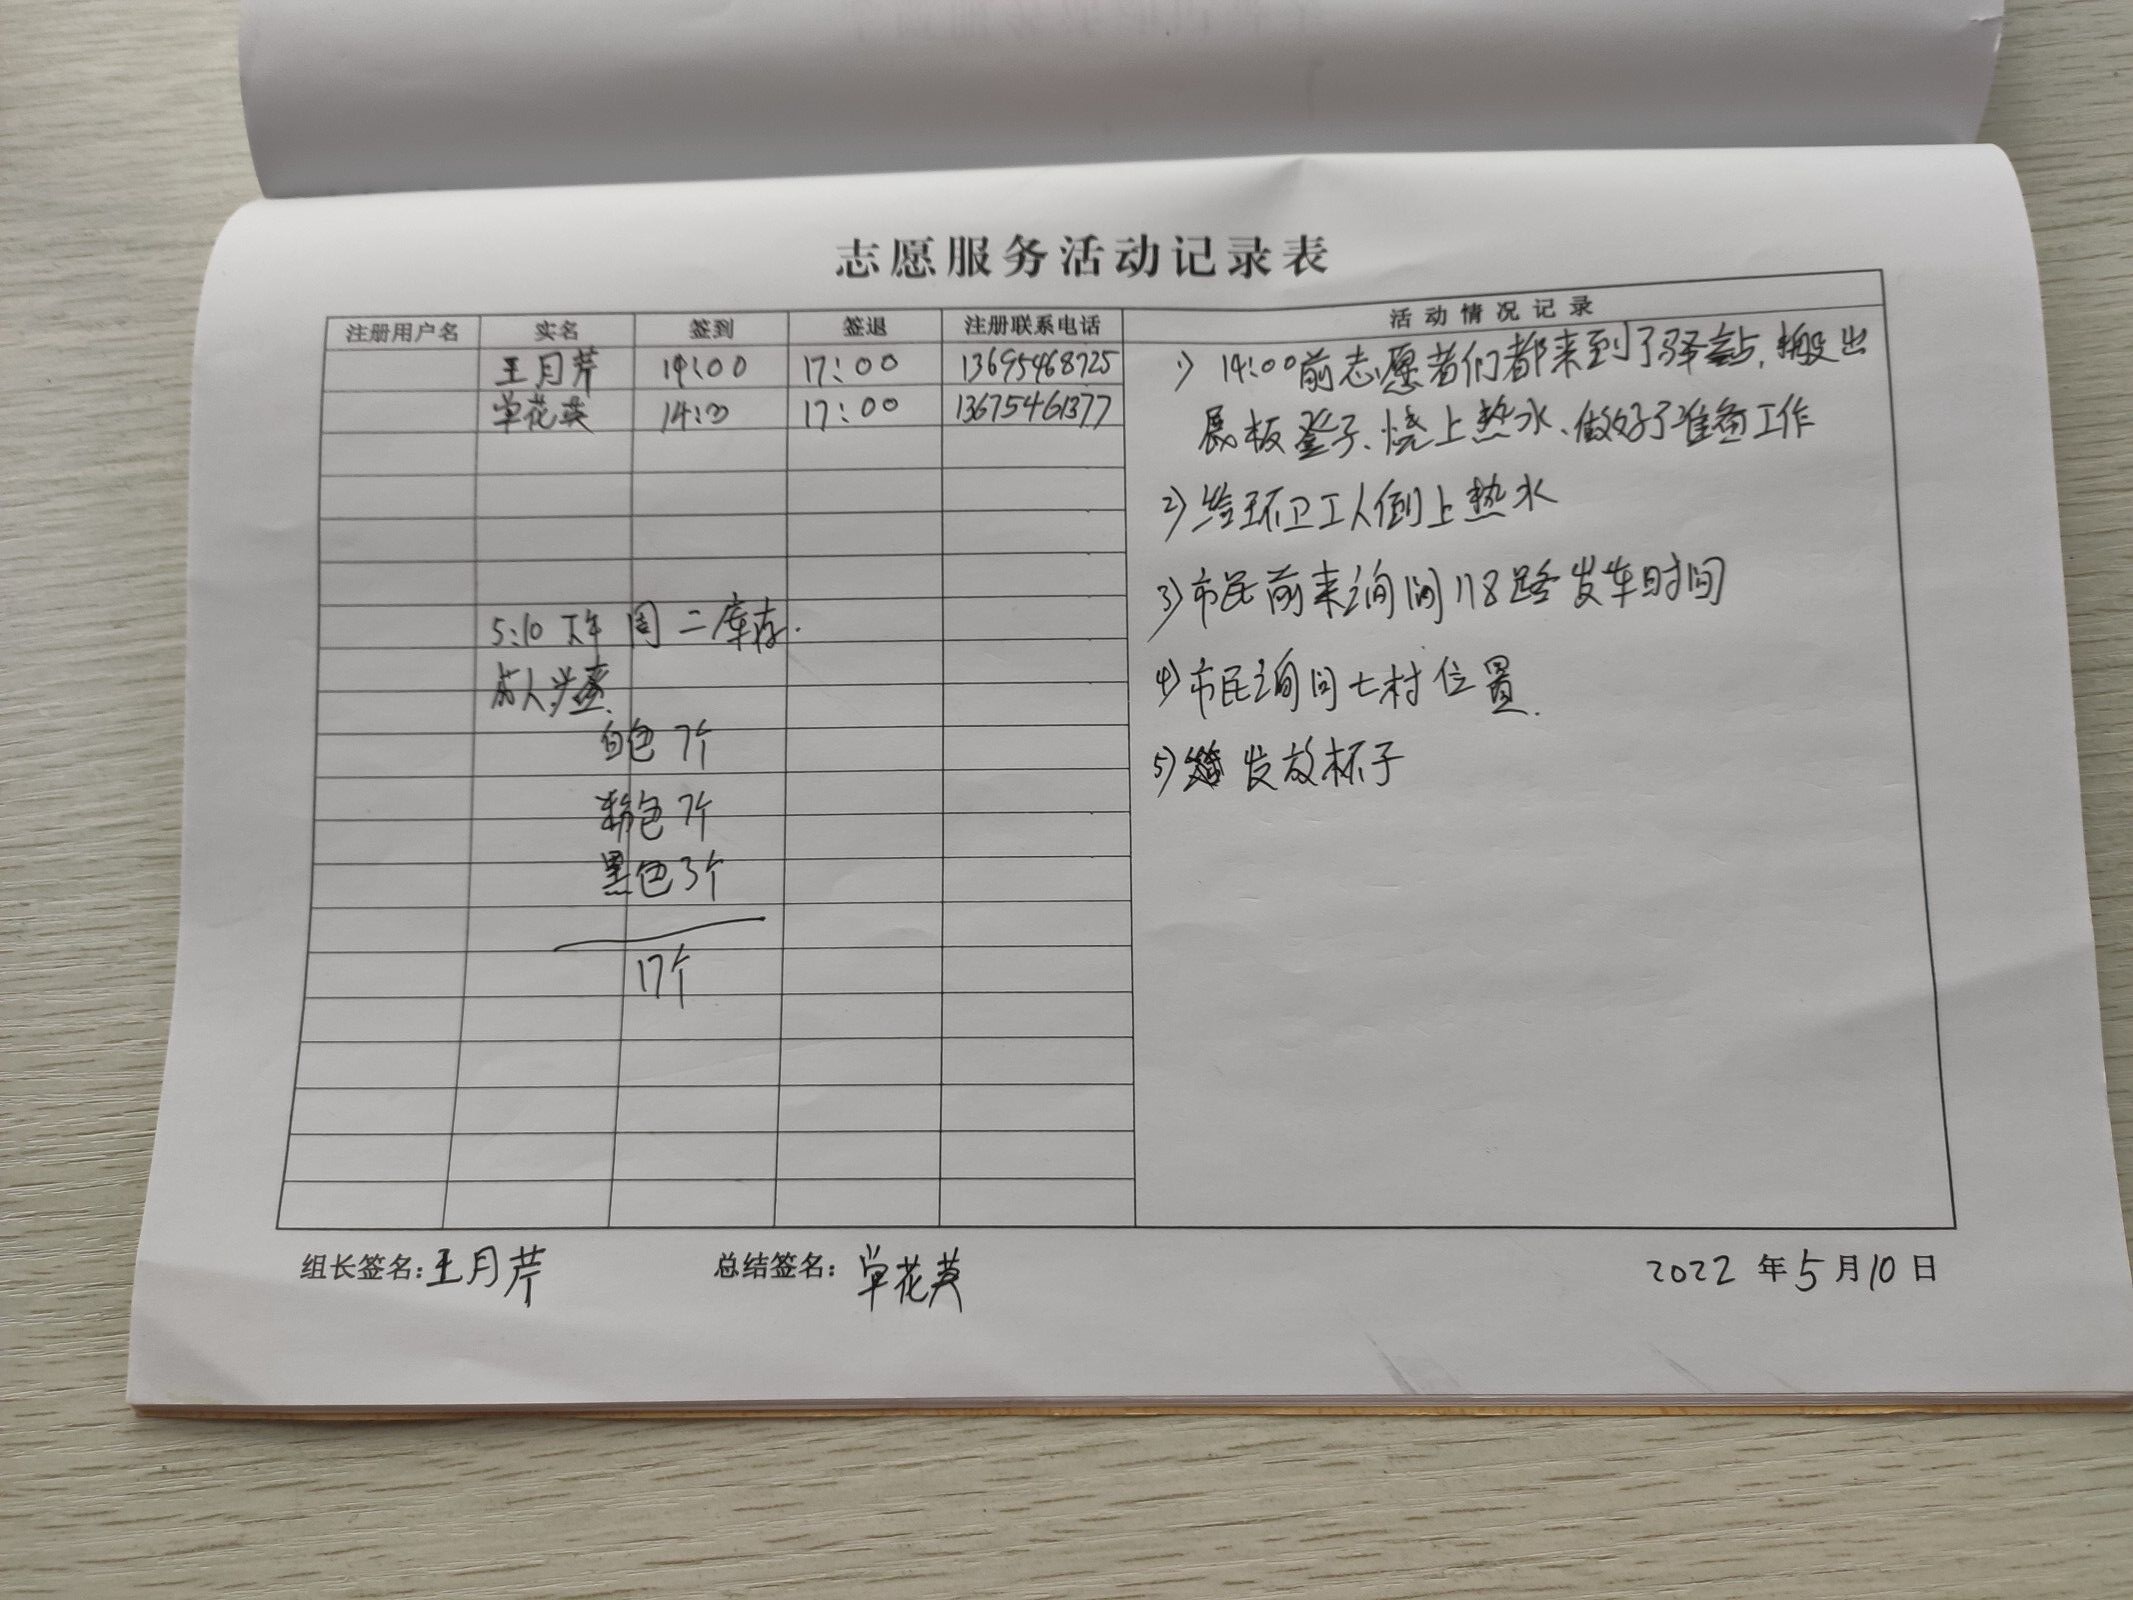 志愿服务活动记录表
注册用户名 实名 签到 签退 注册联系电话 活动情况记录
王月芹 14:00 17:00 13695468725
单花英 14:00 17:00 13675461377
1) 14:00前志愿者们都来到了驿站,搬出
展板凳子、烧上热水、做好了准备工作
2) 给环卫工人倒上热水
3) 市民前来询问118路发车时间
4) 市民询问七村位置.
5) 发放杯子
5:10 下午 周二库存.
白色 7个
粉色 7个
黑色 3个
17个
组长签名:王月芹 总结签名:单花英 2022年5月10日